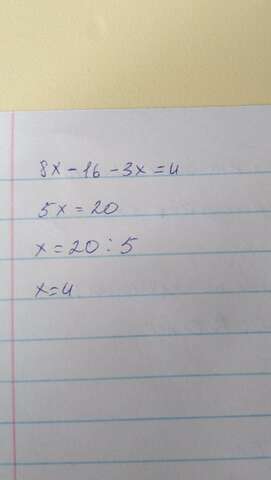 8x-16-3x=4
5x=20
x=20:5
x=4